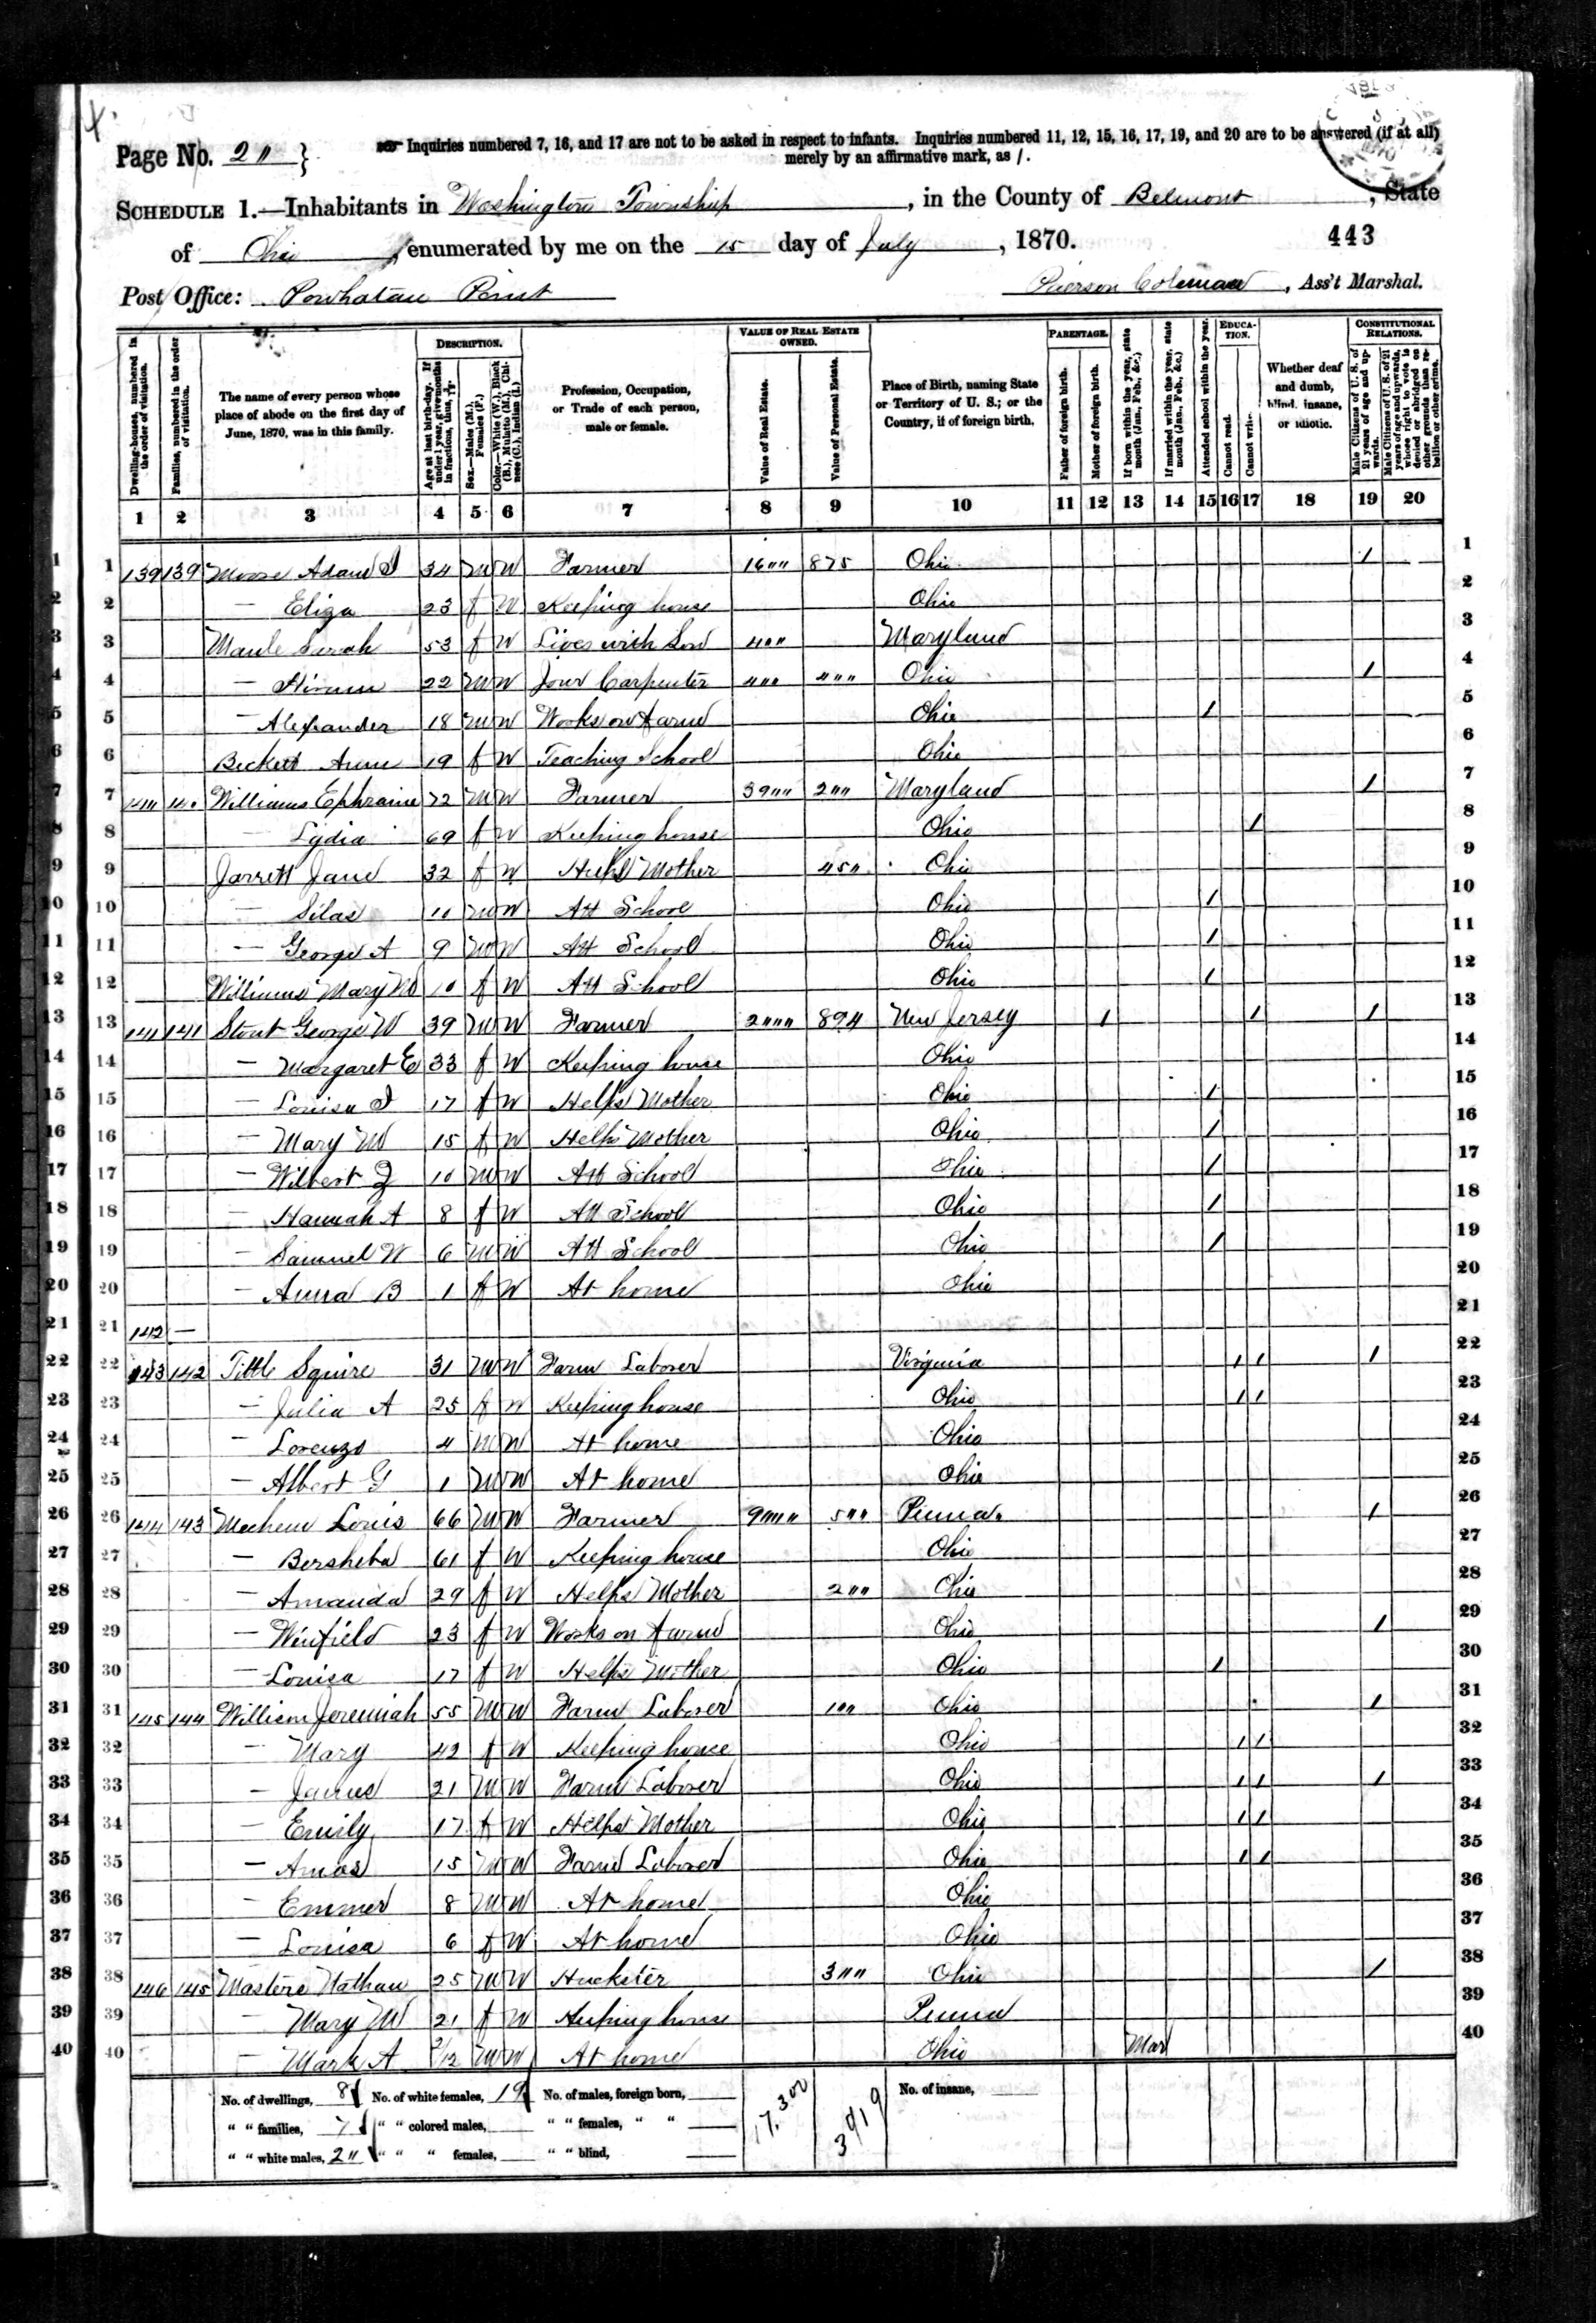 Page No. 2"
Inquiries numbered 7, 16, and 17 are not to be asked in respect to infants. Inquiries numbered 11, 12, 15, 16, 17, 19, and 20 are to be answered (if at all)
merely by an affirmative mark, as /.
SCHEDULE 1.—Inhabitants in Washington Township, in the County of Belmont, State
of Ohio, enumerated by me on the 15 day of July, 1870.
443
Post Office: Powhatan Point
Pierson Coleman, Ass't Marshal.
Dwelling-houses, numbered in the order of visitation.
Families, numbered in the order of visitation.
The name of every person whose place of abode on the first day of June, 1870, was in this family.
DESCRIPTION.
Age at last birth-day. If under 1 year, give months in fractions, thus, 3/12.
Sex.—Males (M.), Females (F.)
Color.—White (W.), Black (B.), Mulatto (M.), Chinese (C.), Indian (I.)
Profession, Occupation, or Trade of each person, male or female.
VALUE OF REAL ESTATE OWNED.
Value of Real Estate.
Value of Personal Estate.
Place of Birth, naming State or Territory of U. S.; or the Country, if of foreign birth.
PARENTAGE.
Father of foreign birth.
Mother of foreign birth.
If born within the year, state month (Jan., Feb., &c.)
If married within the year, state month (Jan., Feb., &c.)
Attended school within the year.
EDUCATION.
Cannot read.
Cannot write.
Whether deaf and dumb, blind, insane, or idiotic.
CONSTITUTIONAL RELATIONS.
Male Citizens of U. S. of 21 years of age and upwards.
Male Citizens of U. S. of 21 years of age and upwards, whose right to vote is denied or abridged on other grounds than rebellion or other crime.
1 2 3 4 5 6 7 8 9 10 11 12 13 14 15 16 17 18 19 20
1 139 139 Moore Adam J 34 M W Farmer 16"" 875 Ohio 1 1
2 — Eliza 23 f W Keeping house Ohio 2
3 Maule Sarah 53 f W Lives with Son 4"" Maryland 3
4 — Hiram 22 M W Jour Carpenter 4"" 4"" Ohio 1 4
5 — Alexander 18 M W Works on farm Ohio 1 5
6 Beckett Anne 19 f W Teaching School Ohio 6
7 14" 14" Williams Ephraim 72 M W Farmer 39"" 2"" Maryland 1 7
8 — Lydia 69 f W Keeping house Ohio 1 8
9 Jarrett Jane 32 f W Helps Mother 45" Ohio 9
10 — Silas 11 M W Att School Ohio 1 10
11 — George A 9 M W Att School Ohio 1 11
12 Williams Mary M 10 f W Att School Ohio 1 12
13 141 141 Stout George W 39 M W Farmer 2""" 894 New Jersey 1 1 1 13
14 — Margaret E 33 f W Keeping house Ohio 14
15 — Louisa J 17 f W Helps Mother Ohio 1 15
16 — Mary M 15 f W Helps Mother Ohio 1 16
17 — Wilbert Z 10 M W Att School Ohio 1 17
18 — Hannah A 8 f W Att School Ohio 1 18
19 — Samuel W 6 M W Att School Ohio 1 19
20 — Anna B 1 f W At home Ohio 20
21 142 — 21
22 143 142 Tittle Squire 31 M W Farm Laborer Virginia 1 1 1 22
23 — Julia A 25 f W Keeping house Ohio 1 1 23
24 — Lorenzo 4 M W At home Ohio 24
25 — Albert G 1 M W At home Ohio 25
26 144 143 Mechem Louis 66 M W Farmer 9""" 5"" Penna. 1 26
27 — Bersheba 61 f W Keeping house Ohio 27
28 — Amanda 29 f W Helps Mother 2"" Ohio 28
29 — Winfield 23 f W Works on farm Ohio 1 29
30 — Louisa 17 f W Helps Mother Ohio 1 30
31 145 144 William Jeremiah 55 M W Farm Laborer 1"" Ohio 1 31
32 — Mary 42 f W Keeping house Ohio 1 1 32
33 — James 21 M W Farm Laborer Ohio 1 1 1 33
34 — Emily 17 f W Helps Mother Ohio 1 1 34
35 — Amos 15 M W Farm Laborer Ohio 1 1 35
36 — Emmer 8 M W At home Ohio 36
37 — Louisa 6 f W At home Ohio 37
38 146 145 Masters Nathan 25 M W Huckster 3"" Ohio 1 38
39 — Mary M 21 f W Keeping house Penna 39
40 — Mark A /12 M W At home Ohio Mar 40
No. of dwellings, 8 No. of white females, 19 No. of males, foreign born, 17,300 3919 No. of insane,
" " families, 7 " " colored males, " " females, " "
" " white males, 2" " " " females, " " blind,